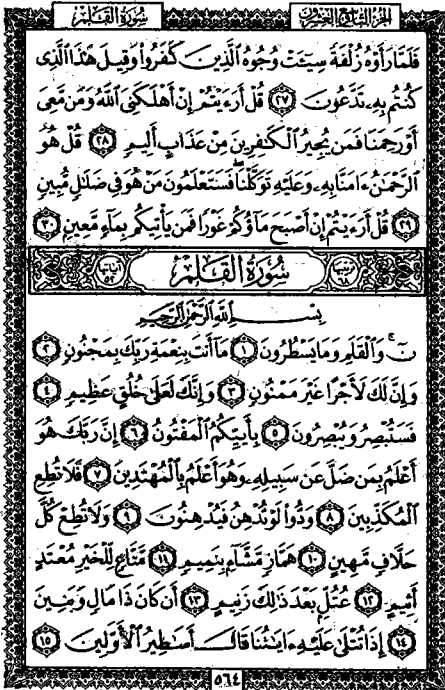 سُورَةُ القَلَمِ
الجُزءُ التَّاسِعُ وَالعِشْرُونَ
فَلَمَّا رَأَوْهُ زُلْفَةً سِيٓـَٔتْ وُجُوهُ ٱلَّذِينَ كَفَرُوا۟ وَقِيلَ هَٰذَا ٱلَّذِى
كُنتُم بِهِۦ تَدَّعُونَ ٢٧ قُلْ أَرَءَيْتُمْ إِنْ أَهْلَكَنِىَ ٱللَّهُ وَمَن مَّعِىَ
أَوْ رَحِمَنَا فَمَن يُجِيرُ ٱلْكَٰفِرِينَ مِنْ عَذَابٍ أَلِيمٍ ٢٨ قُلْ هُوَ
ٱلرَّحْمَٰنُ ءَامَنَّا بِهِۦ وَعَلَيْهِ تَوَكَّلْنَا ۖ فَسَتَعْلَمُونَ مَنْ هُوَ فِى ضَلَٰلٍ مُّبِينٍ
٢٩ قُلْ أَرَءَيْتُمْ إِنْ أَصْبَحَ مَآؤُكُمْ غَوْرًا فَمَن يَأْتِيكُم بِمَآءٍ مَّعِينٍۭ ٣٠
ترتيبها ٦٨ سُورَةُ القَلَمِ آياتها ٥٢
بِسْمِ ٱللَّهِ ٱلرَّحْمَٰنِ ٱلرَّحِيمِ
نٓ ۚ وَٱلْقَلَمِ وَمَا يَسْطُرُونَ ١ مَآ أَنتَ بِنِعْمَةِ رَبِّكَ بِمَجْنُونٍ ٢
وَإِنَّ لَكَ لَأَجْرًا غَيْرَ مَمْنُونٍ ٣ وَإِنَّكَ لَعَلَىٰ خُلُقٍ عَظِيمٍ ٤
فَسَتُبْصِرُ وَيُبْصِرُونَ ٥ بِأَييِّكُمُ ٱلْمَفْتُونُ ٦ إِنَّ رَبَّكَ هُوَ
أَعْلَمُ بِمَن ضَلَّ عَن سَبِيلِهِۦ وَهُوَ أَعْلَمُ بِٱلْمُهْتَدِينَ ٧ فَلَا تُطِعِ
ٱلْمُكَذِّبِينَ ٨ وَدُّوا۟ لَوْ تُدْهِنُ فَيُدْهِنُونَ ٩ وَلَا تُطِعْ كُلَّ
حَلَّافٍ مَّهِينٍ ١٠ هَمَّازٍ مَّشَّآءٍۭ بِنَمِيمٍ ١١ مَّنَّاعٍ لِّلْخَيْرِ مُعْتَدٍ
أَثِيمٍ ١٢ عُتُلٍّۭ بَعْدَ ذَٰلِكَ زَنِيمٍ ١٣ أَن كَانَ ذَا مَالٍ وَبَنِينَ
١٤ إِذَا تُتْلَىٰ عَلَيْهِ ءَايَٰتُنَا قَالَ أَسَٰطِيرُ ٱلْأَوَّلِينَ ١٥
٥٦٤